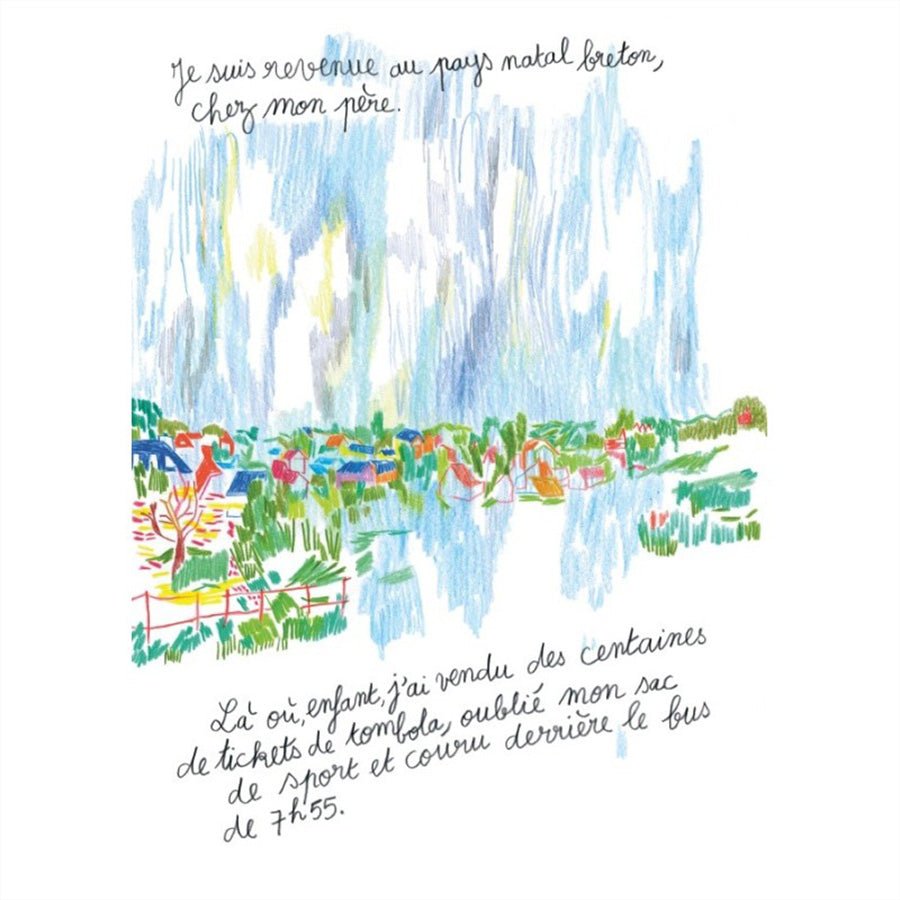 Je suis revenue au pays natal breton,
chez mon père.
Là où, enfant, j'ai vendu des centaines
de tickets de tombola, oublié mon sac
de sport et couru derrière le bus
de 7h55.